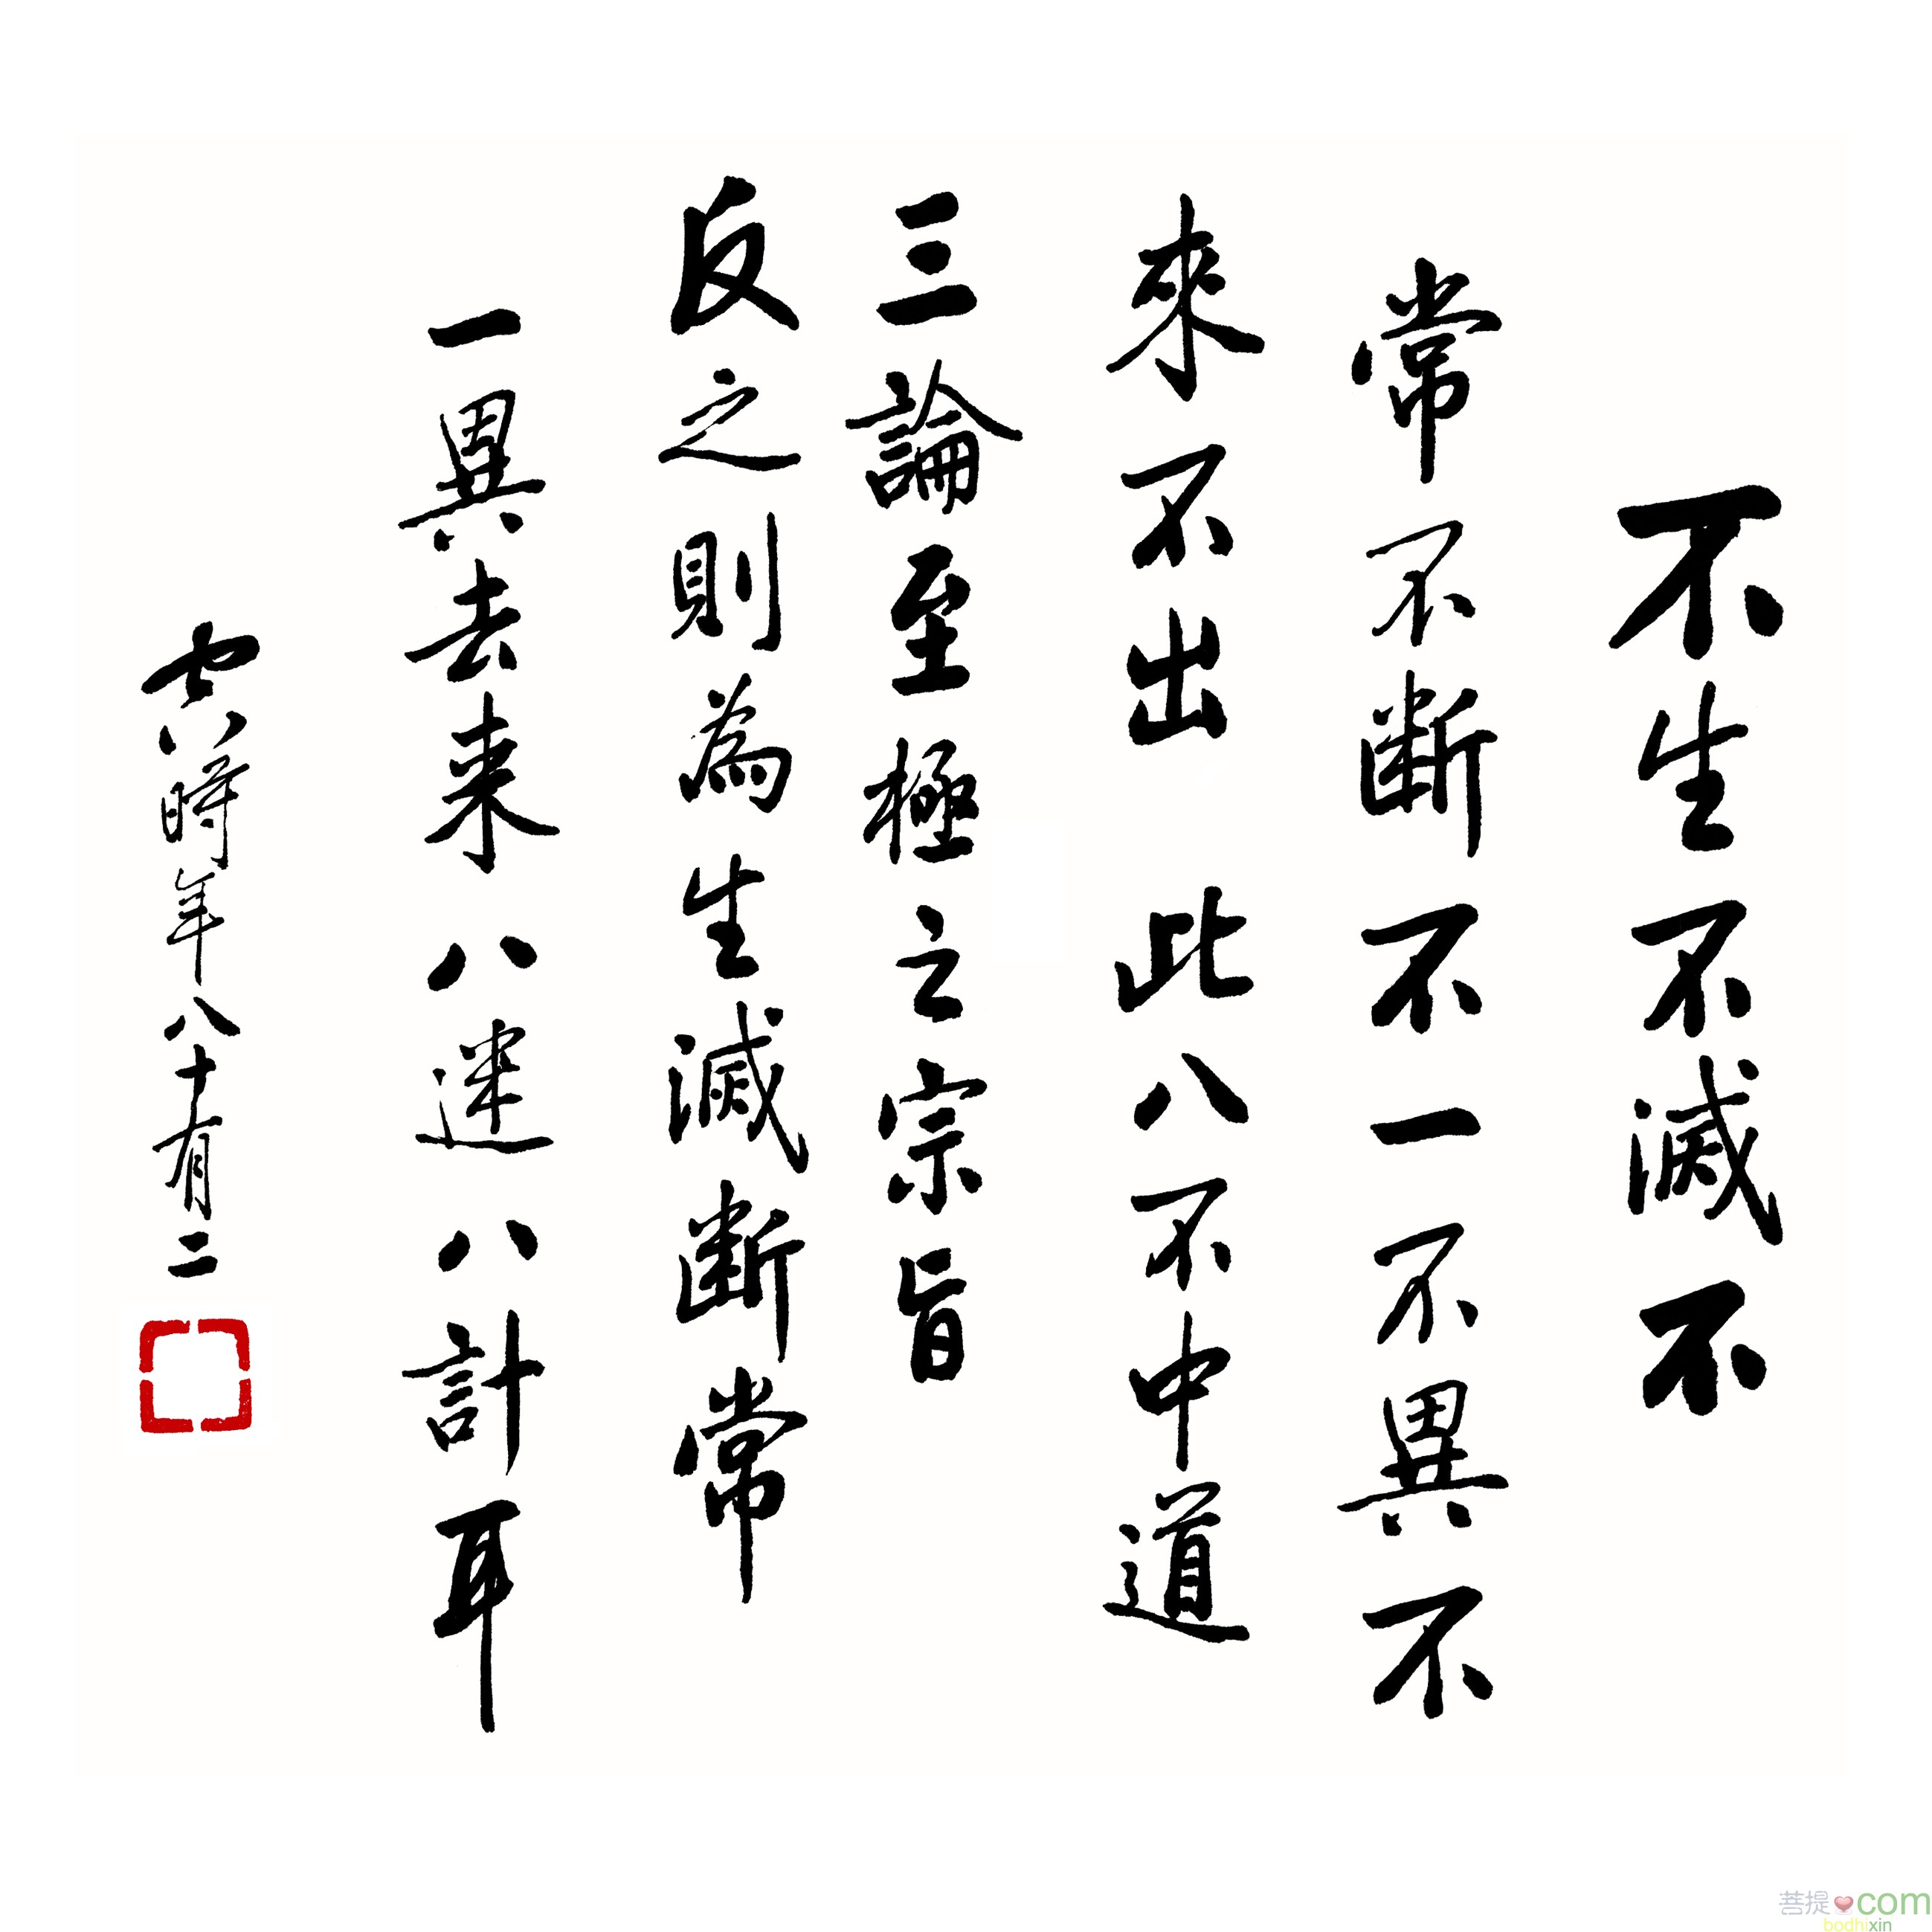 不生不滅不
常不斷不一不異不
來不出 此八不中道
三論至極之宗旨
反之則為生滅斷常
一異去来八迷八計耳
時年八十有二
菩提com
bodhixin